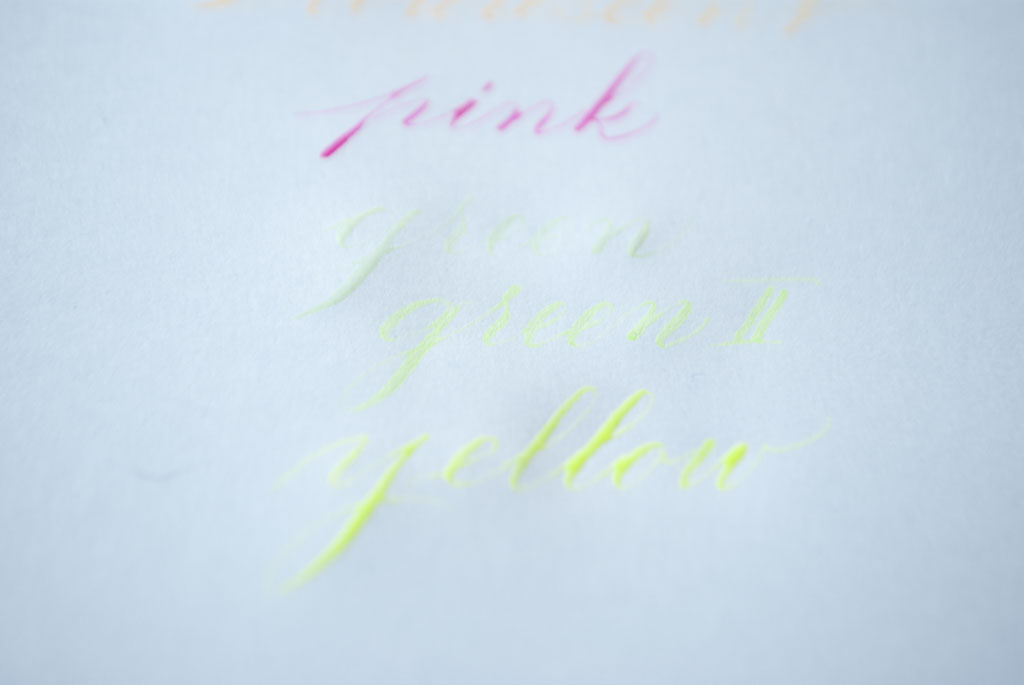 pink
green
green II
yellow